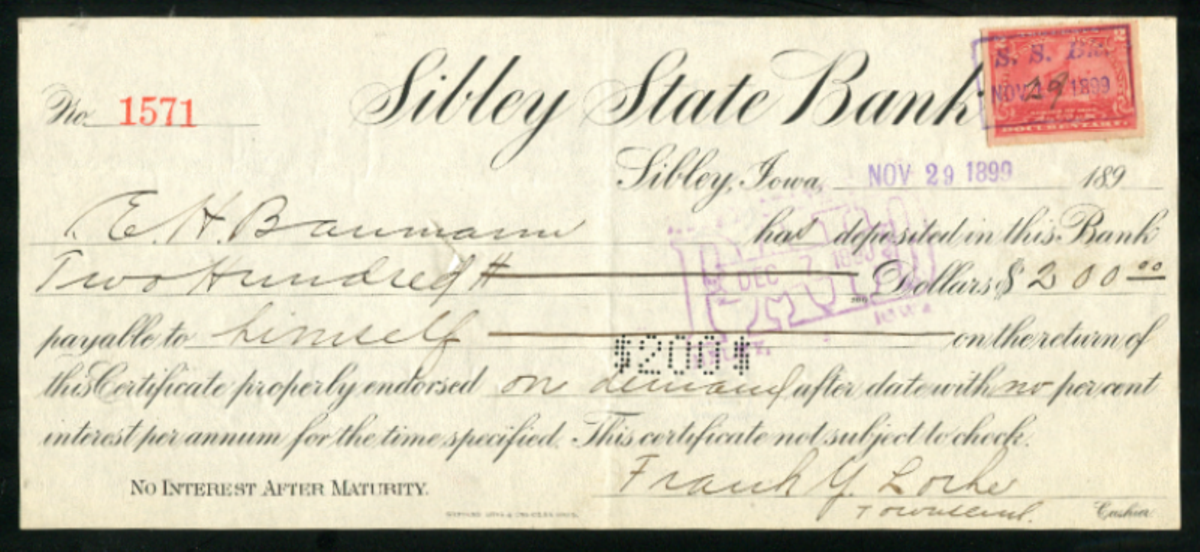 No. 1571
Sibley State Bank
S. S. Bk.
NOV 29 1899
DOCUMENTARY.
Sibley, Iowa, NOV 29 1899 189
E. H. Baumann has deposited in this Bank
Two Hundred Dollars $ 200 00
payable to himself on the return of
$200$
this Certificate properly endorsed on demand after date with no per cent
interest per annum for the time specified. This certificate not subject to check.
NO INTEREST AFTER MATURITY.
Frank Y. Locke
Townsend. Cashier
PAID
DEC 7 1899
IOWA